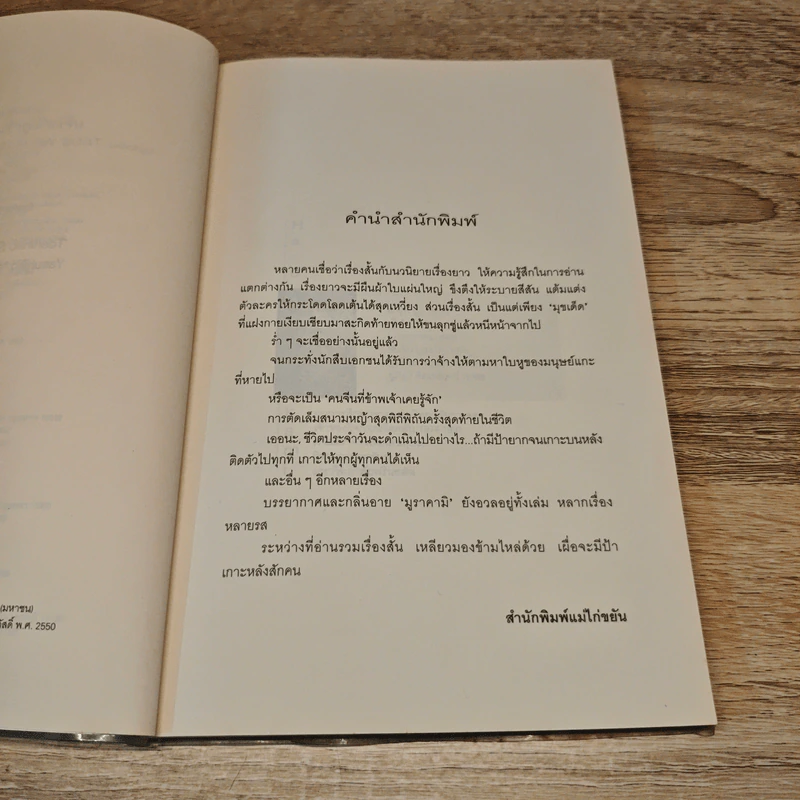 (มหาชน)
พ.ศ. 2550
คำนำสำนักพิมพ์
หลายคนเชื่อว่าเรื่องสั้นกับนวนิยายเรื่องยาว ให้ความรู้สึกในการอ่าน
แตกต่างกัน เรื่องยาวจะมีผืนผ้าใบแผ่นใหญ่ ขึงตึงให้ระบายสีสัน แต้มแต่ง
ตัวละครให้กระโดดโลดเต้นได้สุดเหวี่ยง ส่วนเรื่องสั้น เป็นแต่เพียง ‘มุขเด็ด’
ที่แฝงกายเงียบเชียบมาสะกิดท้ายทอยให้ขนลุกซู่แล้วหนีหน้าจากไป
ร่ำ ๆ จะเชื่ออย่างนั้นอยู่แล้ว
จนกระทั่งนักสืบเอกชนได้รับการว่าจ้างให้ตามหาใบหูของมนุษย์แกะ
ที่หายไป
หรือจะเป็น ‘คนจีนที่ข้าพเจ้าเคยรู้จัก’
การตัดเล็มสนามหญ้าสุดพิถีพิถันครั้งสุดท้ายในชีวิต
เออนะ, ชีวิตประจำวันจะดำเนินไปอย่างไร...ถ้ามีป้ายากจนเกาะบนหลัง
ติดตัวไปทุกที่ เกาะให้ทุกผู้ทุกคนได้เห็น
และอื่น ๆ อีกหลายเรื่อง
บรรยากาศและกลิ่นอาย ‘มูราคามิ’ ยังอวลอยู่ทั้งเล่ม หลากเรื่อง
หลายรส
ระหว่างที่อ่านรวมเรื่องสั้น เหลียวมองข้ามไหล่ด้วย เผื่อจะมีป้า
เกาะหลังสักคน
สำนักพิมพ์แม่ไก่ขยัน